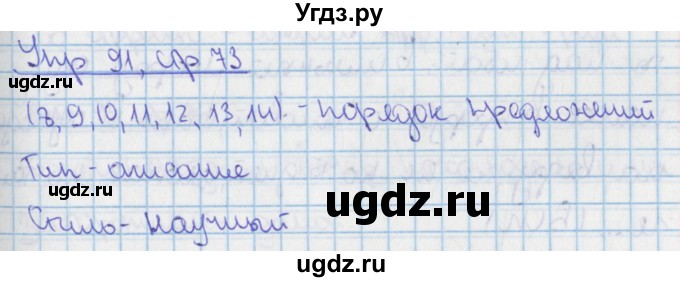 Угдз.ру
Упр 91, стр 73
ugdz.ru
ugdz.ru
(8, 9, 10, 11, 12, 13, 14) - порядок предложений
ugdz.ru
Тип - описание
ugdz.ru
ugdz.ru
Стиль - научный
ugdz.ru
ugdz.ru